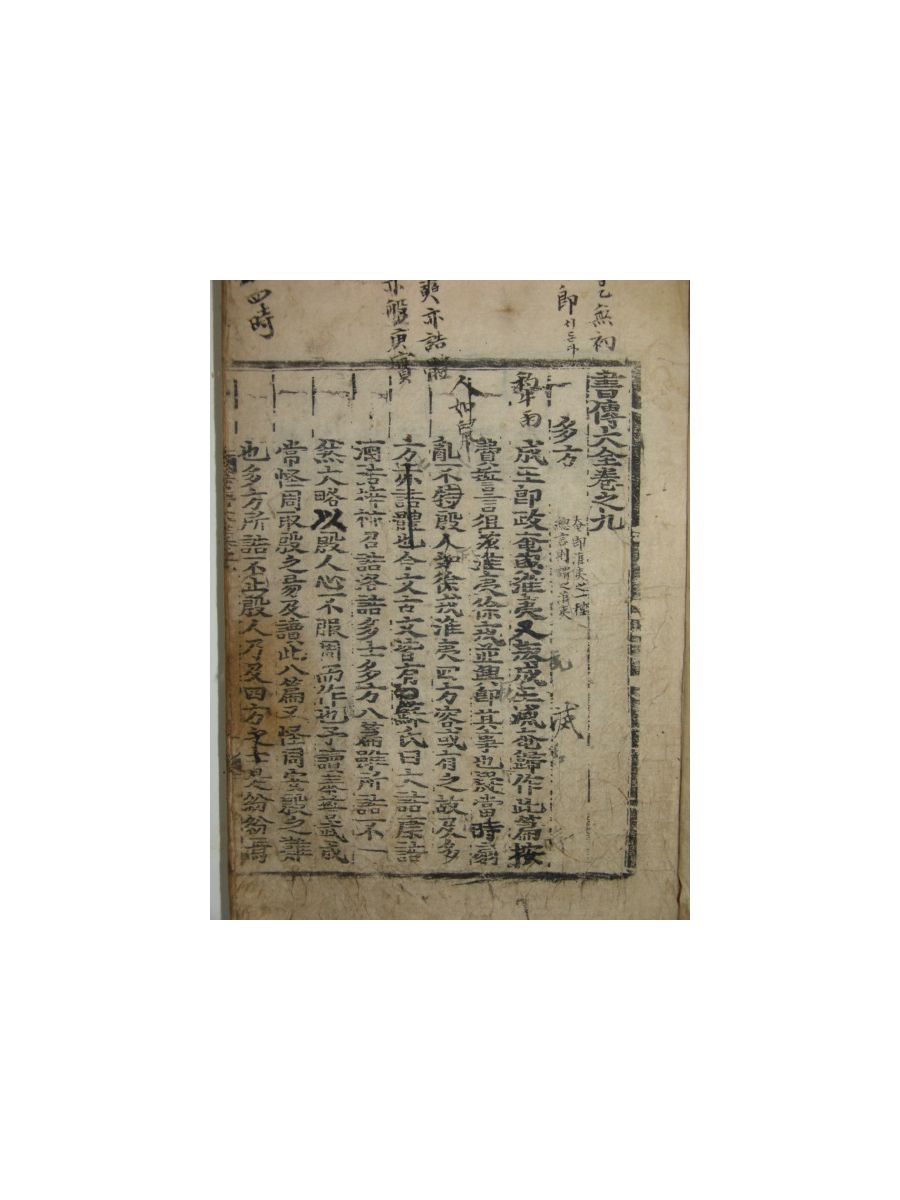 書傳大全卷之九
多方
奄卽淮夷之一種
總言則謂之淮夷
成王卽政奄與淮夷又叛成王滅奄歸作此篇按
費誓言徂玆淮夷徐戎並興卽其事也疑當時扇
亂不特殷人如徐戎淮夷四方容或有之故及多
方亦誥體也今文古文皆有○蘇氏曰大誥康誥
酒誥梓材召誥洛誥多士多方八篇雖所誥不一
然大略以殷人心不服周而作也予讀泰誓武成
常怪周取殷之易及讀此八篇又怪周安殷之難
也多方所誥不止殷人乃及四方之士是紛紛焉
無初
卽
四時
滅
人如